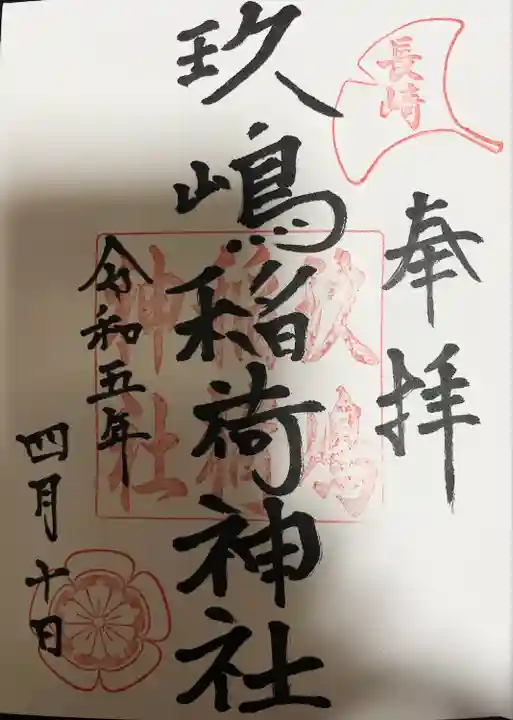 長崎
奉拝
玖嶋稲荷神社
玖嶋
稲荷
神社
令和五年
四月十日